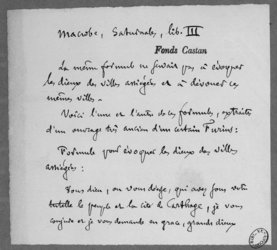 Macrobe, Saturnales, lib. III
Fonds Castan
La même formule ne servait pas à évoquer
les dieux des villes assiégées et à dévouer ces
mêmes villes.
Voici l'une et l'autre de ces formules, extraites
d'un ouvrage très ancien d'un certain Furius :
Formule pour évoquer les dieux des villes
assiégées :
Tous dieu, ou vous déesse, qui avez sous votre
tutelle le peuple et la cité de Carthage, je vous
conjure et je vous demande en grace, grands dieux